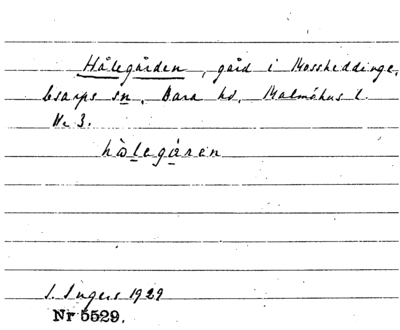 Hålegården, gård i Mossheddinge,
Esarps sn, Bara hd, Malmöhus l.
Nr 3.
hålegåren
I. Ingers 1929
Nr 5529.